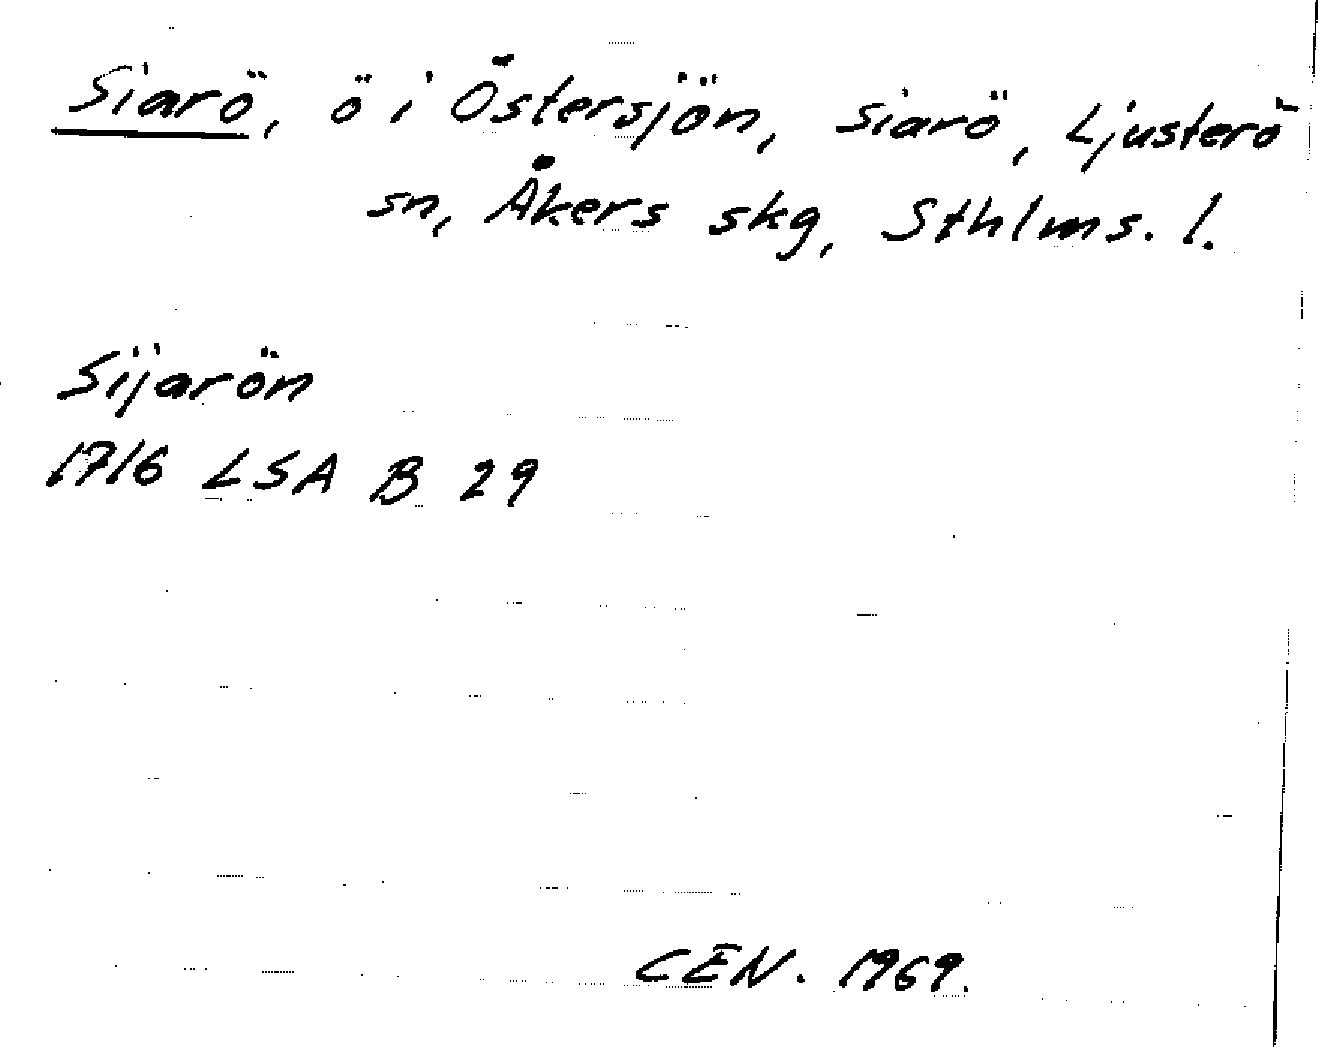 Siarö, ö i Östersjön, Siarö, Ljusterö
sn, Åkers skg, Sthlms. l.
Sijarön
1716 LSA B 29
CEN. 1969.